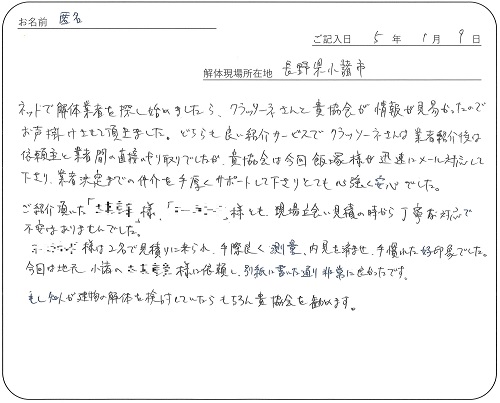 お名前 匿名
ご記入日 5年1月9日
解体現場所在地 長野県小諸市
ネットで解体業者を探し始めましたら、クラッソーネさんと貴協会が情報が見易かったので
お声掛けさせて頂きました。どちらも良い紹介サービスでクラッソーネさんは業者紹介後は
依頼主と業者間の直接のやり取りでしたが、貴協会は今回飯塚様が迅速にメール対応して
下さり、業者決定までの仲介を手厚くサポートして下さりとても心強く安心でした。
ご紹介頂いた「 」様、「 」様とも、現場立会い見積の時から丁寧な対応で
不安はありませんでした。
様は2名で見積りに来られ、手際良く測量、内見も済ませ、手慣れた好印象でした。
今回は地元小諸の 様に依頼し、別紙に書いた通り非常に良かったです。
もし知人が建物の解体を検討していたらもちろん貴協会を勧めます。